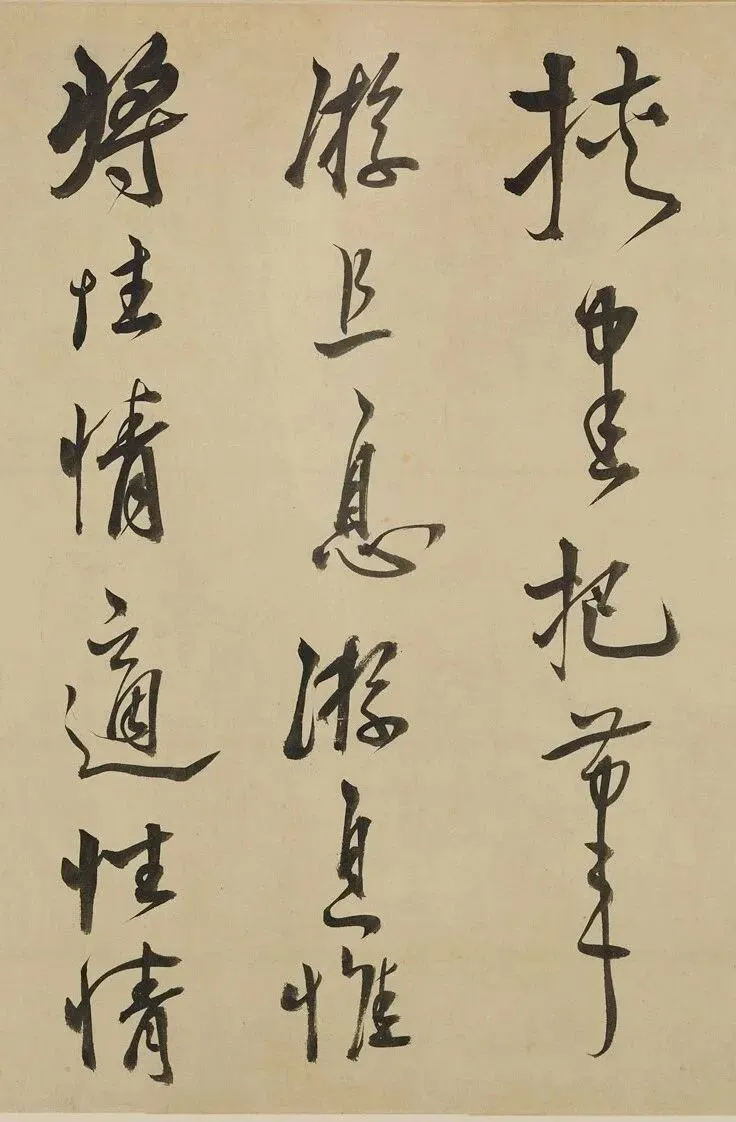 挾把筆
游且息游息惟
將性情適性情